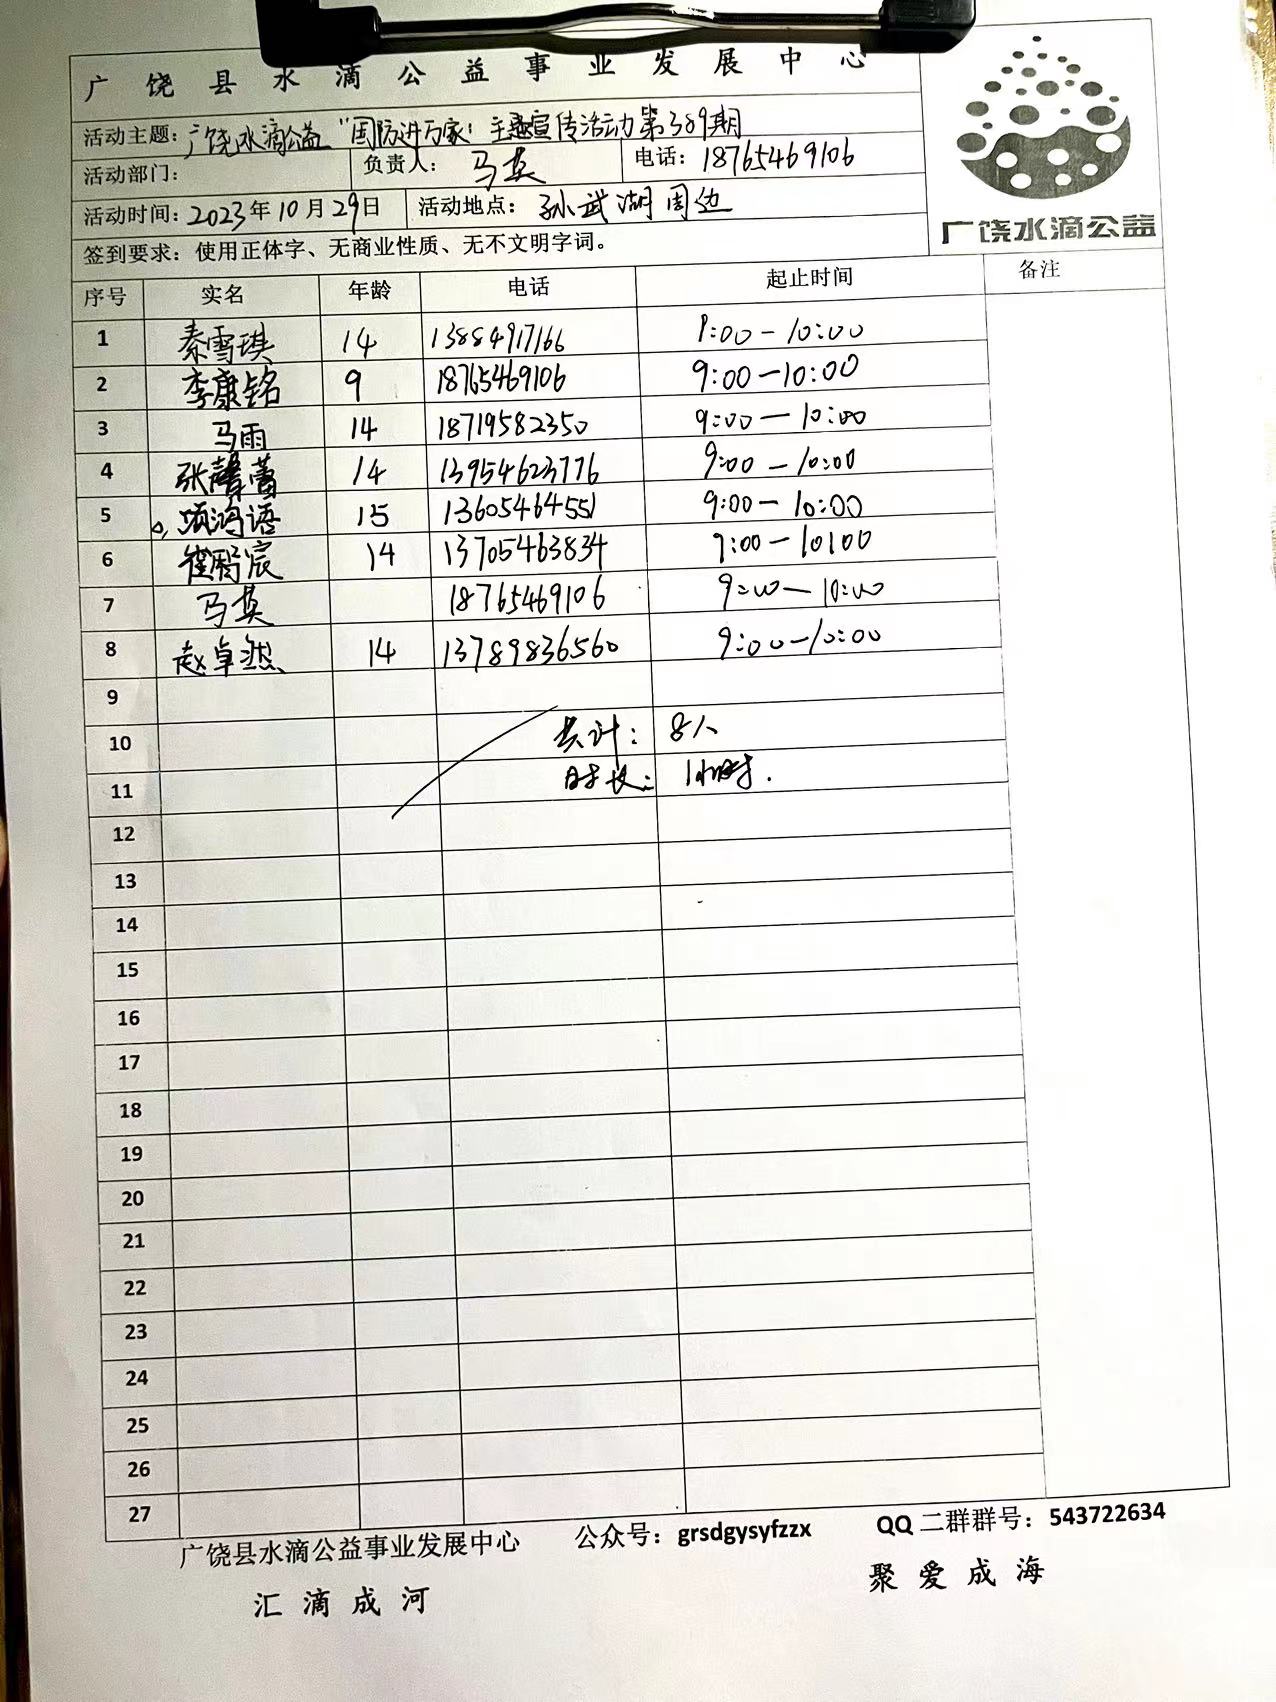 广饶县水滴公益事业发展中心
活动主题：广饶水滴公益"国防进万家！主题宣传活动第389期
活动部门： 负责人：马英 电话：18765469106
活动时间：2023年10月29日 活动地点：孙武湖周边
广饶水滴公益
签到要求：使用正体字、无商业性质、无不文明字词。
序号 实名 年龄 电话 起止时间 备注
1 秦雪琪 14 13884917166 9:00-10:00
2 李康铭 9 18765469106 9:00-10:00
3 马雨 14 18719582350 9:00-10:00
4 张馨蕾 14 13954623776 9:00-10:00
5 鸿语 15 13605464551 9:00-10:00
6 崔 宸 14 13705463834 9:00-10:00
7 马英 18765469106 9:00-10:00
8 赵卓然 14 13789836560 9:00-10:00
9
10 共计：8人
11 时长：1小时.
12
13
14
15
16
17
18
19
20
21
22
23
24
25
26
27
广饶县水滴公益事业发展中心 公众号：grsdgysyfzzx QQ二群群号：543722634
汇滴成河 聚爱成海